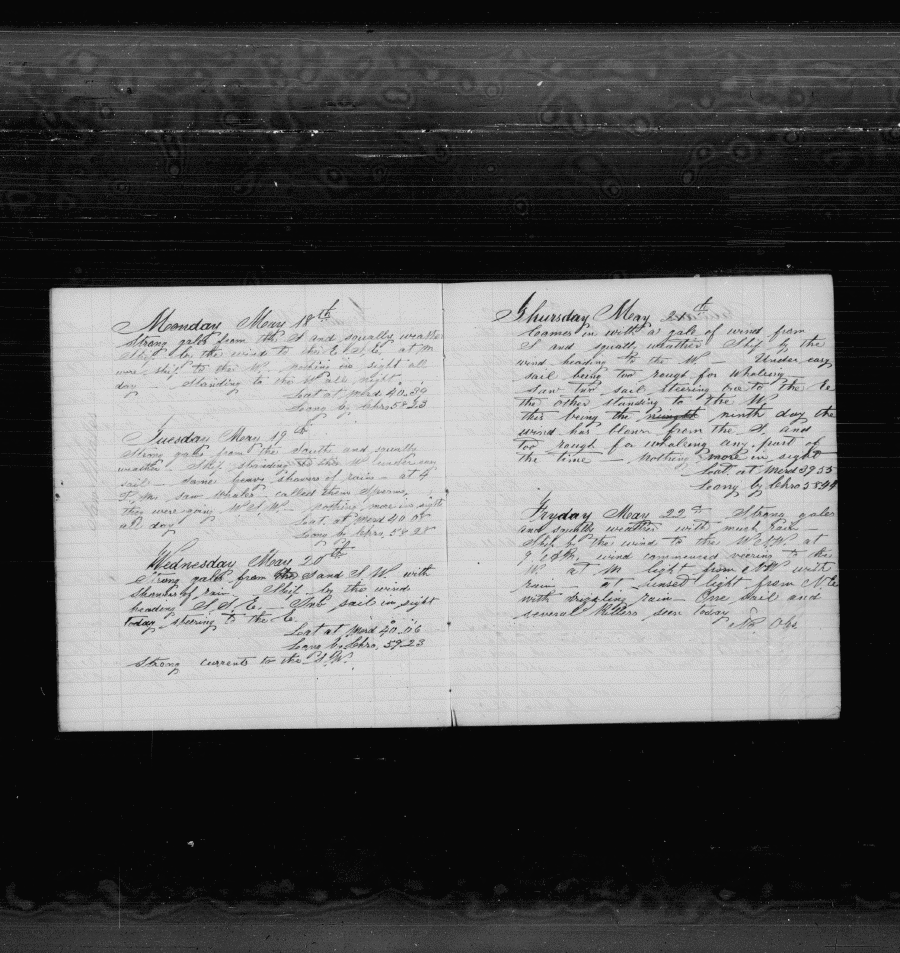 Monday May 18th
Strong gales from the S and squally weather
Ship by the wind to the E.S.E. at M
wore ship to the W. nothing in sight all
day - standing to the W all night.
Lat at Merd 40.34
Long by Chro 58.23
Tuesday May 19th
Strong gales from the South and squally
weather - Ship standing to the W under easy
sail - Some heavy showers of rain - at 4
P.M. saw whales - called them Sperm,
they were going W.S.W. - nothing more in sight
all day
Lat. at Merd 40.08
Long by Chro, 58.28
Wednesday May 20th
Strong gales from the S and S.W. with
showers of rain. Ship by the wind
heading S.S.E. - Two sail in sight
today steering to the E.
Lat at Merd 40.06
Long by Chro, 59.23
Strong currents to the S.W.
Thursday May 21th
Comes in with a gale of wind from
S and squally weather Ship by the
wind heading to the W - Under easy
sail being too rough for whaleing -
Saw two sail, steering one to the E
the other standing to the W
this being the ninth day the
wind has blown from the S, and
too rough for whaleing any part of
the time - Nothing more in sight
Lat. at Merd 39.55
Long by Chro 58.44
Fryday May 22d Strong gales
and squally weather with much rain -
Ship by the wind to the W at
wind commenced veering to the
W at M light from with
rain - at sunset light from N.E.
with drizzling rain - One sail and
several Killers seen today
No Obs.